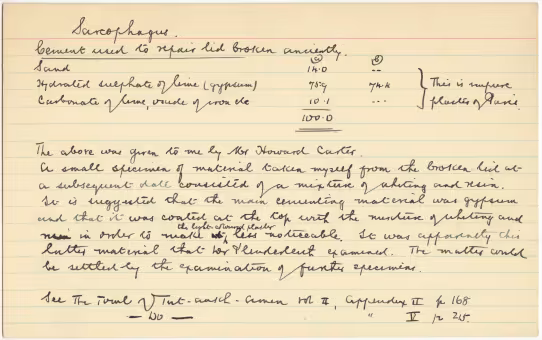 Sarcophagus.
Cement used to repair lid broken anciently.
Sand 14.0 --
Hydrated sulphate of lime (gypsum) 75.9 74.4 This is impure
Carbonate of lime, oxide of iron etc 10.1 ... plaster of Paris.
100.0
The above was given to me by Mr Howard Carter.
A small specimen of material taken myself from the broken lid at
a subsequent date consisted of a mixture of whiting and resin.
It is suggested that the main cementing material was gypsum
and that it was coated at the top with the mixture of whiting and
the light-coloured plaster
resin in order to make less noticeable. It was apparently this
latter material that Dr Plenderleith examined. The matter could
be settled by the examination of further specimens.
See The Tomb of Tut-ankh-Amen vol II, Appendix II p 168
— Do — " V p 215.